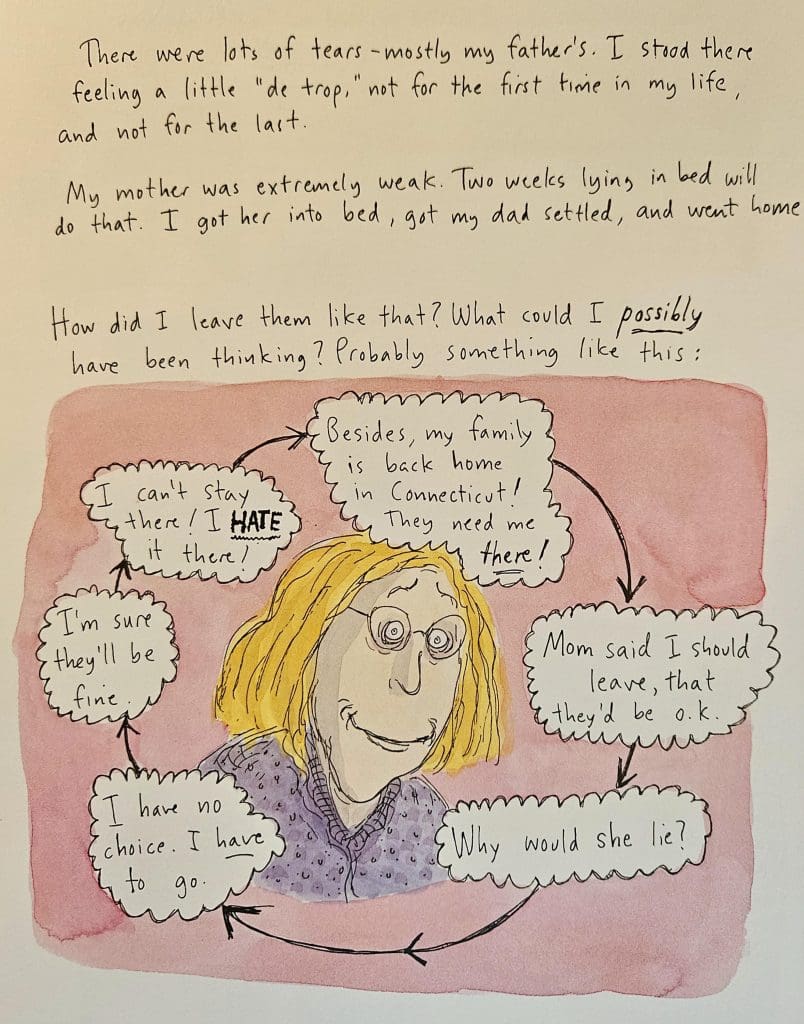 There were lots of tears – mostly my father's. I stood there
feeling a little "de trop," not for the first time in my life,
and not for the last.
My mother was extremely weak. Two weeks lying in bed will
do that. I got her into bed, got my dad settled, and went home
How did I leave them like that? What could I possibly
have been thinking? Probably something like this:
Besides, my family
is back home
in Connecticut!
They need me
there!
Mom said I should
leave, that
they'd be o.k.
Why would she lie?
I have no
choice. I have
to go.
I'm sure
they'll be
fine.
I can't stay
there! I HATE
it there!